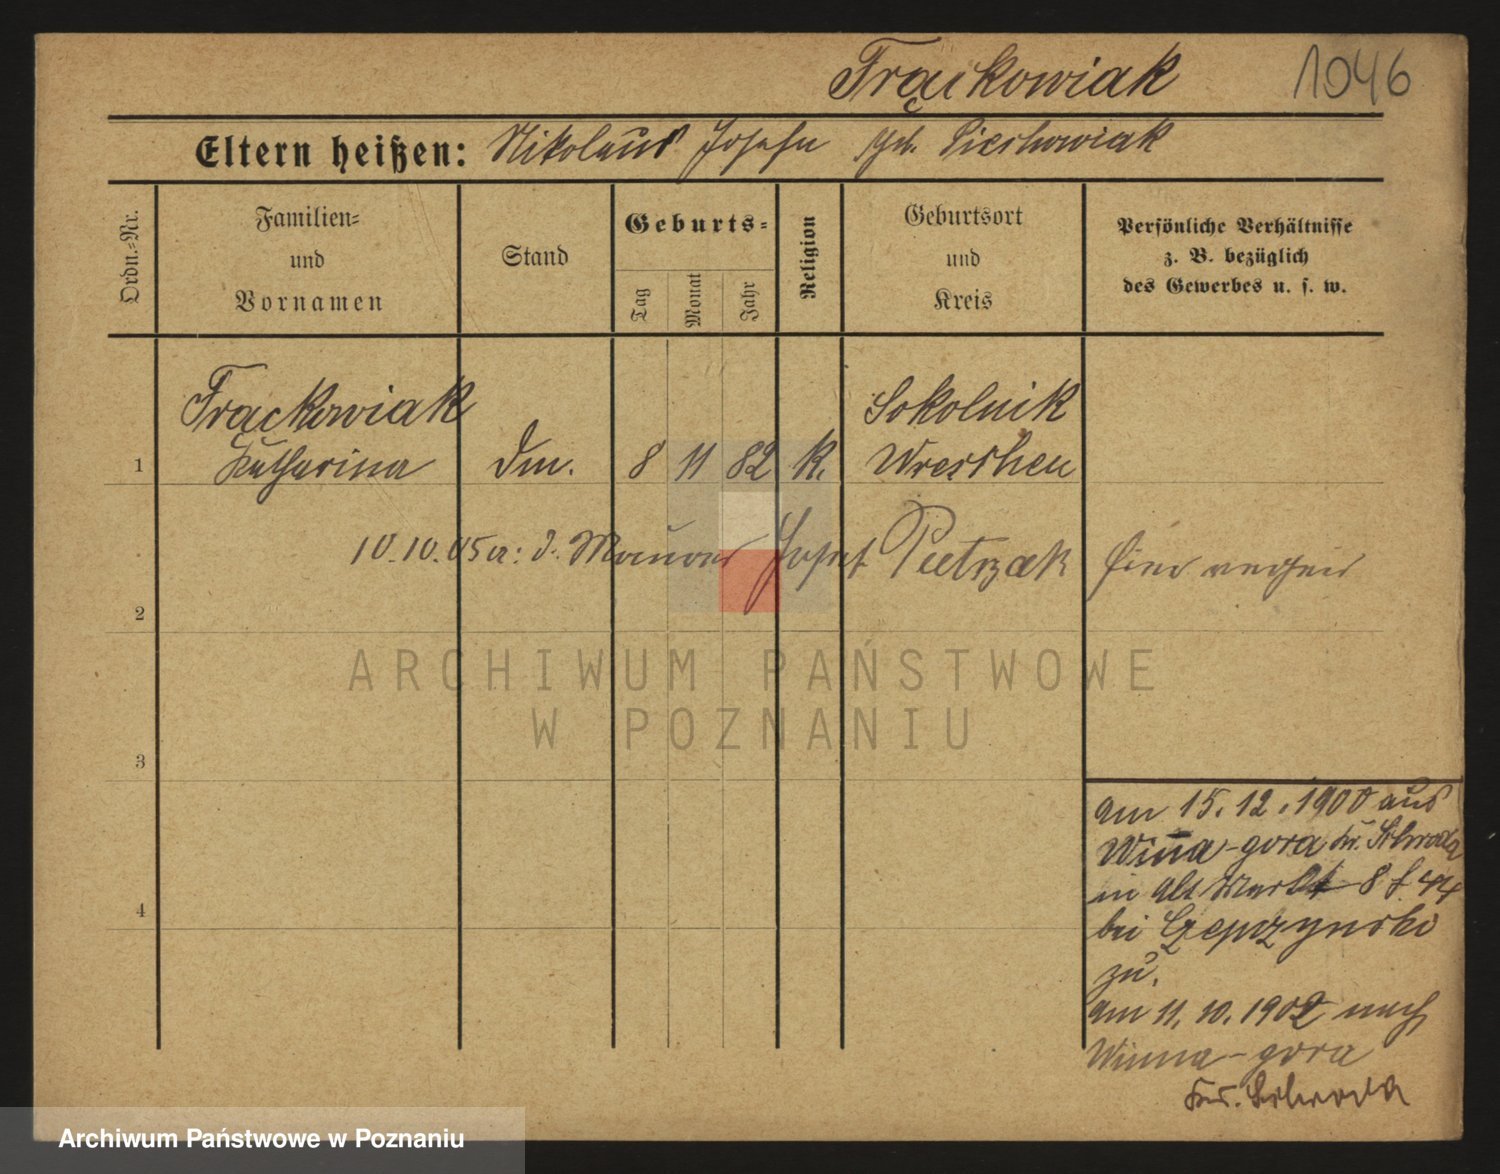 Frąckowiak 1046
Eltern heißen: Nikolaus Josefa geb. Piechowiak
Ordn.-Nr.
Familien-
und
Vornamen
Stand
Geburts-
Tag
Monat
Jahr
Religion
Geburtsort
und
Kreis
Persönliche Verhältnisse
z. B. bezüglich
des Gewerbes u. s. w.
Frąckowiak
Sokolnik
1 Katharina Dm. 8 11 82 k. Wreschen
10.10.05 a: d. Maurer Josef Pietrzak hier
2
3
4
am 15.12.1900 aus
Winna-gora Kr. Schroda
in Alt Markt 8 f. 44
bei
zu.
am 11.10.1902 nach
Winna-gora
Kr. Schroda
ARCHIWUM PAŃSTWOWE
W POZNANIU
Archiwum Państwowe w Poznaniu